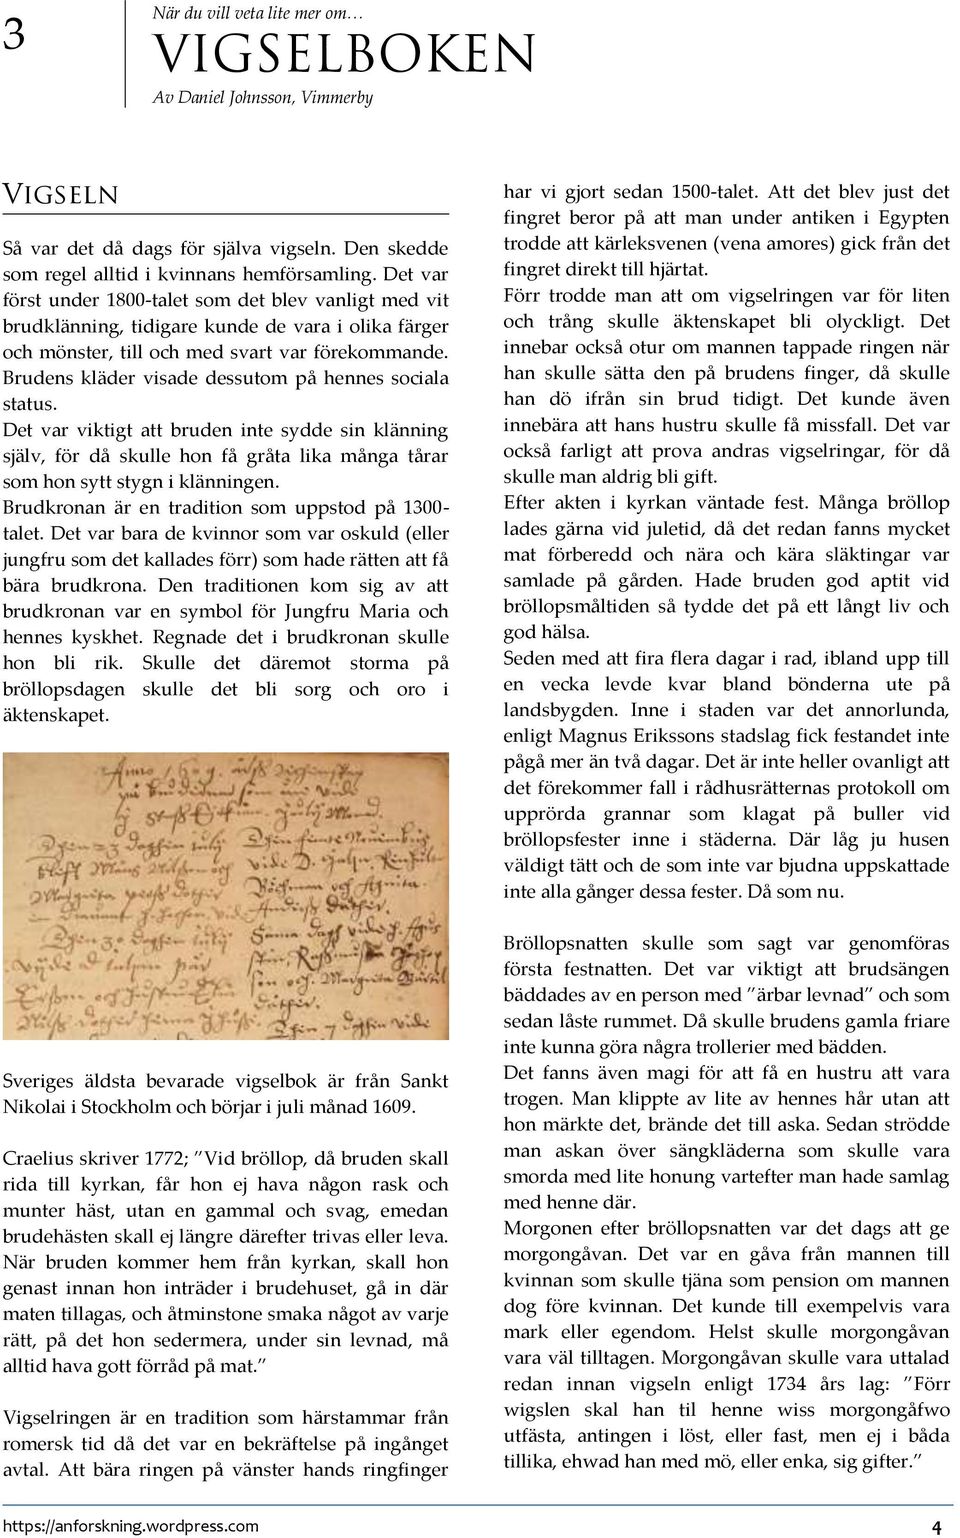 3
När du vill veta lite mer om…
VIGSELBOKEN
Av Daniel Johnsson, Vimmerby
VIGSELN
Så var det då dags för själva vigseln. Den skedde
som regel alltid i kvinnans hemförsamling. Det var
först under 1800-talet som det blev vanligt med vit
brudklänning, tidigare kunde de vara i olika färger
och mönster, till och med svart var förekommande.
Brudens kläder visade dessutom på hennes sociala
status.
Det var viktigt att bruden inte sydde sin klänning
själv, för då skulle hon få gråta lika många tårar
som hon sytt stygn i klänningen.
Brudkronan är en tradition som uppstod på 1300-
talet. Det var bara de kvinnor som var oskuld (eller
jungfru som det kallades förr) som hade rätten att få
bära brudkrona. Den traditionen kom sig av att
brudkronan var en symbol för Jungfru Maria och
hennes kyskhet. Regnade det i brudkronan skulle
hon bli rik. Skulle det däremot storma på
bröllopsdagen skulle det bli sorg och oro i
äktenskapet.
Anno 1609
Sveriges äldsta bevarade vigselbok är från Sankt
Nikolai i Stockholm och börjar i juli månad 1609.
Craelius skriver 1772; ”Vid bröllop, då bruden skall
rida till kyrkan, får hon ej hava någon rask och
munter häst, utan en gammal och svag, emedan
brudehästen skall ej längre därefter trivas eller leva.
När bruden kommer hem från kyrkan, skall hon
genast innan hon inträder i brudehuset, gå in där
maten tillagas, och åtminstone smaka något av varje
rätt, på det hon sedermera, under sin levnad, må
alltid hava gott förråd på mat.”
Vigselringen är en tradition som härstammar från
romersk tid då det var en bekräftelse på ingånget
avtal. Att bära ringen på vänster hands ringfinger
har vi gjort sedan 1500-talet. Att det blev just det
fingret beror på att man under antiken i Egypten
trodde att kärleksvenen (vena amores) gick från det
fingret direkt till hjärtat.
Förr trodde man att om vigselringen var för liten
och trång skulle äktenskapet bli olyckligt. Det
innebar också otur om mannen tappade ringen när
han skulle sätta den på brudens finger, då skulle
han dö ifrån sin brud tidigt. Det kunde även
innebära att hans hustru skulle få missfall. Det var
också farligt att prova andras vigselringar, för då
skulle man aldrig bli gift.
Efter akten i kyrkan väntade fest. Många bröllop
lades gärna vid juletid, då det redan fanns mycket
mat förberedd och nära och kära släktingar var
samlade på gården. Hade bruden god aptit vid
bröllopsmåltiden så tydde det på ett långt liv och
god hälsa.
Seden med att fira flera dagar i rad, ibland upp till
en vecka levde kvar bland bönderna ute på
landsbygden. Inne i staden var det annorlunda,
enligt Magnus Erikssons stadslag fick festandet inte
pågå mer än två dagar. Det är inte heller ovanligt att
det förekommer fall i rådhusrätternas protokoll om
upprörda grannar som klagat på buller vid
bröllopsfester inne i städerna. Där låg ju husen
väldigt tätt och de som inte var bjudna uppskattade
inte alla gånger dessa fester. Då som nu.
Bröllopsnatten skulle som sagt var genomföras
första festnatten. Det var viktigt att brudsängen
bäddades av en person med ”ärbar levnad” och som
sedan låste rummet. Då skulle brudens gamla friare
inte kunna göra några trollerier med bädden.
Det fanns även magi för att få en hustru att vara
trogen. Man klippte av lite av hennes hår utan att
hon märkte det, brände det till aska. Sedan strödde
man askan över sängkläderna som skulle vara
smorda med lite honung vartefter man hade samlag
med henne där.
Morgonen efter bröllopsnatten var det dags att ge
morgongåvan. Det var en gåva från mannen till
kvinnan som skulle tjäna som pension om mannen
dog före kvinnan. Det kunde till exempelvis vara
mark eller egendom. Helst skulle morgongåvan
vara väl tilltagen. Morgongåvan skulle vara uttalad
redan innan vigseln enligt 1734 års lag: ”Förr
wigslen skal han til henne wiss morgongåfwo
utfästa, antingen i löst, eller fast, men ej i båda
tillika, ehwad han med mö, eller enka, sig gifter.”
https://anforskning.wordpress.com
4